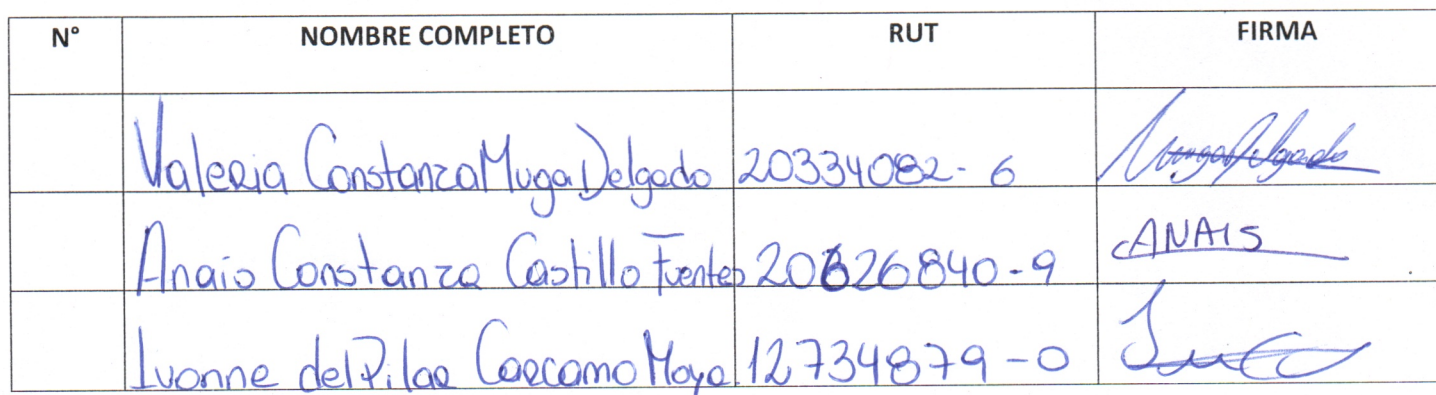 N° NOMBRE COMPLETO RUT FIRMA
Valeria Constanza Muga Delgado 20334082-6 MugaDelgado
Anais Constanza Castillo Fuentes 20626840-9 ANAIS
Ivonne del Pilar Carcamo Moya 12734879-0